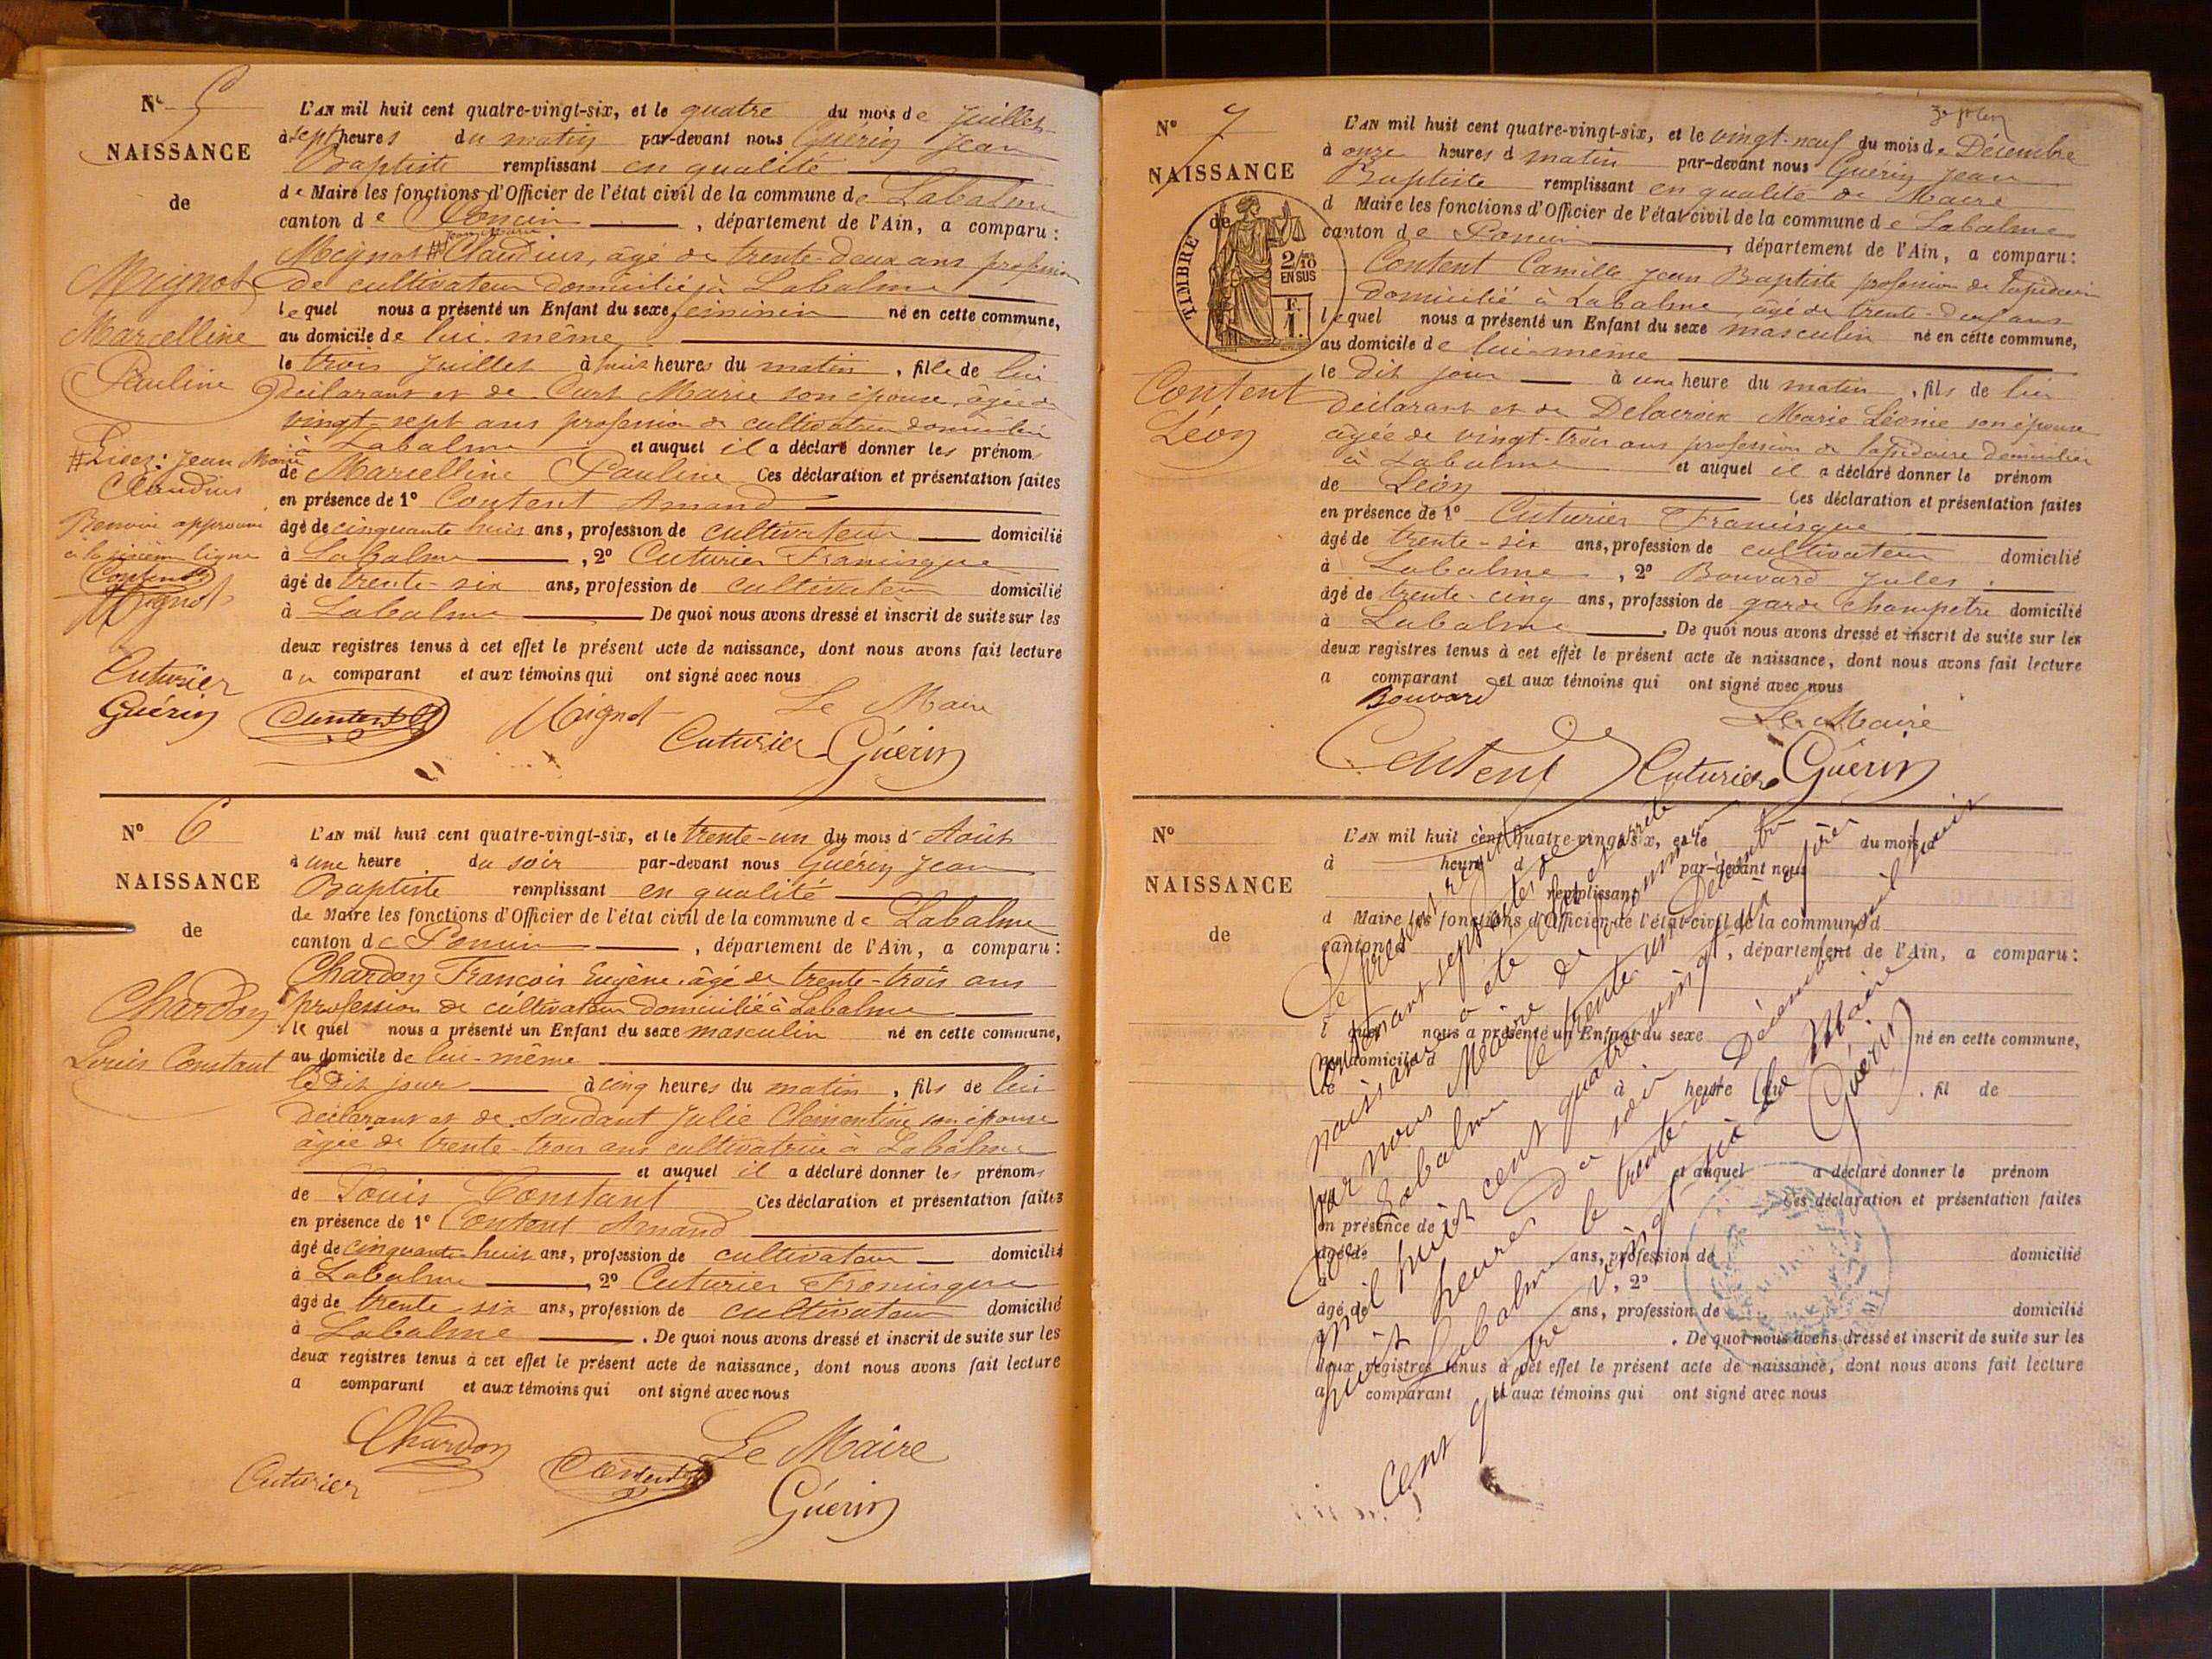 N° 5
NAISSANCE
de
Mignot
Marcelline
Pauline
# Lisez: Jean Marie
Claudius
Renvoi approuvé
à la sixième ligne
Content
Mignot
Cuturier
Guérin
L'AN mil huit cent quatre-vingt-six, et le quatre du mois de Juillet
à sept heures du matin par-devant nous Guérin Jean
Baptiste remplissant en qualité
de Maire les fonctions d'Officier de l'état civil de la commune de Labalme
canton de Poncin, département de l'Ain, a comparu:
Jean Marie
Mignot # Claudius, âgé de trente-deux ans profession
de cultivateur domicilié à Labalme
lequel nous a présenté un Enfant du sexe féminin né en cette commune,
au domicile de lui-même
le trois Juillet à huit heures du matin, fille de lui
déclarant et de Curt Marie son épouse, âgée de
vingt-sept ans profession de cultivatrice domiciliée
à Labalme et auquel il a déclaré donner les prénoms
de Marcelline Pauline Ces déclaration et présentation faites
en présence de 1° Content Amand
âgé de cinquante huit ans, profession de cultivateur domicilié
à Labalme, 2° Cuturier Francisque
âgé de trente-six ans, profession de cultivateur domicilié
à Labalme De quoi nous avons dressé et inscrit de suite sur les
deux registres tenus à cet effet le présent acte de naissance, dont nous avons fait lecture
au comparant et aux témoins qui ont signé avec nous
Le Maire
Content Mignot Cuturier Guérin
N° 6
NAISSANCE
de
Chardon
Louis Constant
L'AN mil huit cent quatre-vingt-six, et le trente-un du mois d'Août
à une heure du soir par-devant nous Guérin Jean
Baptiste remplissant en qualité
de Maire les fonctions d'Officier de l'état civil de la commune de Labalme
canton de Poncin, département de l'Ain, a comparu:
Chardon François Eugène, âgé de trente-trois ans
profession de cultivateur domicilié à Labalme
lequel nous a présenté un Enfant du sexe masculin né en cette commune,
au domicile de lui-même
le dit jour à cinq heures du matin, fils de lui
déclarant et de Soudant Julie Clémentine son épouse
âgée de trente-trois ans cultivatrice à Labalme
et auquel il a déclaré donner les prénoms
de Louis Constant Ces déclaration et présentation faites
en présence de 1° Content Amand
âgé de cinquante-huit ans, profession de cultivateur domicilié
à Labalme, 2° Cuturier Francisque
âgé de trente-six ans, profession de cultivateur domicilié
à Labalme. De quoi nous avons dressé et inscrit de suite sur les
deux registres tenus à cet effet le présent acte de naissance, dont nous avons fait lecture
a comparant et aux témoins qui ont signé avec nous
Chardon Le Maire
Cuturier Content Guérin
N° 7
NAISSANCE
de
TIMBRE
2/10 EN SUS
F. 1.
Content
Léon
L'AN mil huit cent quatre-vingt-six, et le vingt-neuf du mois de Décembre
à onze heures d matin par-devant nous Guérin Jean
Baptiste remplissant en qualité de Maire
d Maire les fonctions d'Officier de l'état civil de la commune de Labalme
canton de Poncin, département de l'Ain, a comparu:
Content Camille Jean Baptiste profession de lapidaire
domicilié à Labalme, âgé de trente-deux ans
lequel nous a présenté un Enfant du sexe masculin né en cette commune,
au domicile de lui-même
le dit jour à une heure du matin, fils de lui
déclarant et de Delacroix Marie Léonie son épouse
âgée de vingt-trois ans profession de lapidaire domiciliée
à Labalme et auquel il a déclaré donner le prénom
de Léon Ces déclaration et présentation faites
en présence de 1° Cuturier Francisque
âgé de trente-six ans, profession de cultivateur domicilié
à Labalme, 2° Bouvard Jules
âgé de trente-cinq ans, profession de garde champêtre domicilié
à Labalme. De quoi nous avons dressé et inscrit de suite sur les
deux registres tenus à cet effet le présent acte de naissance, dont nous avons fait lecture
a comparant et aux témoins qui ont signé avec nous
Bouvard Le Maire
Content Cuturier Guérin
N°
NAISSANCE
de
L'AN mil huit cent quatre-vingt-six, et le du mois d
à heure d par-devant nous
remplissant
d Maire les fonctions d'Officier de l'état civil de la commune d
canton d, département de l'Ain, a comparu:
l quel nous a présenté un Enfant du sexe né en cette commune,
au domicile d
le à heure du, fil de
et auquel a déclaré donner le prénom
Ces déclaration et présentation faites
en présence de 1°
âgé de ans, profession de domicilié
à, 2°
âgé de ans, profession de domicilié
à. De quoi nous avons dressé et inscrit de suite sur les
deux registres tenus à cet effet le présent acte de naissance, dont nous avons fait lecture
a comparant et aux témoins qui ont signé avec nous
Le présent registre
contenant sept actes de
naissance a été clos et arrêté
par nous Maire de la commune
de Labalme le trente-un Décembre
mil huit cent quatre vingt six à
huit heures du soir
Labalme le trente-un Décembre mil huit
cent quatre vingt six
Le Maire
Guérin